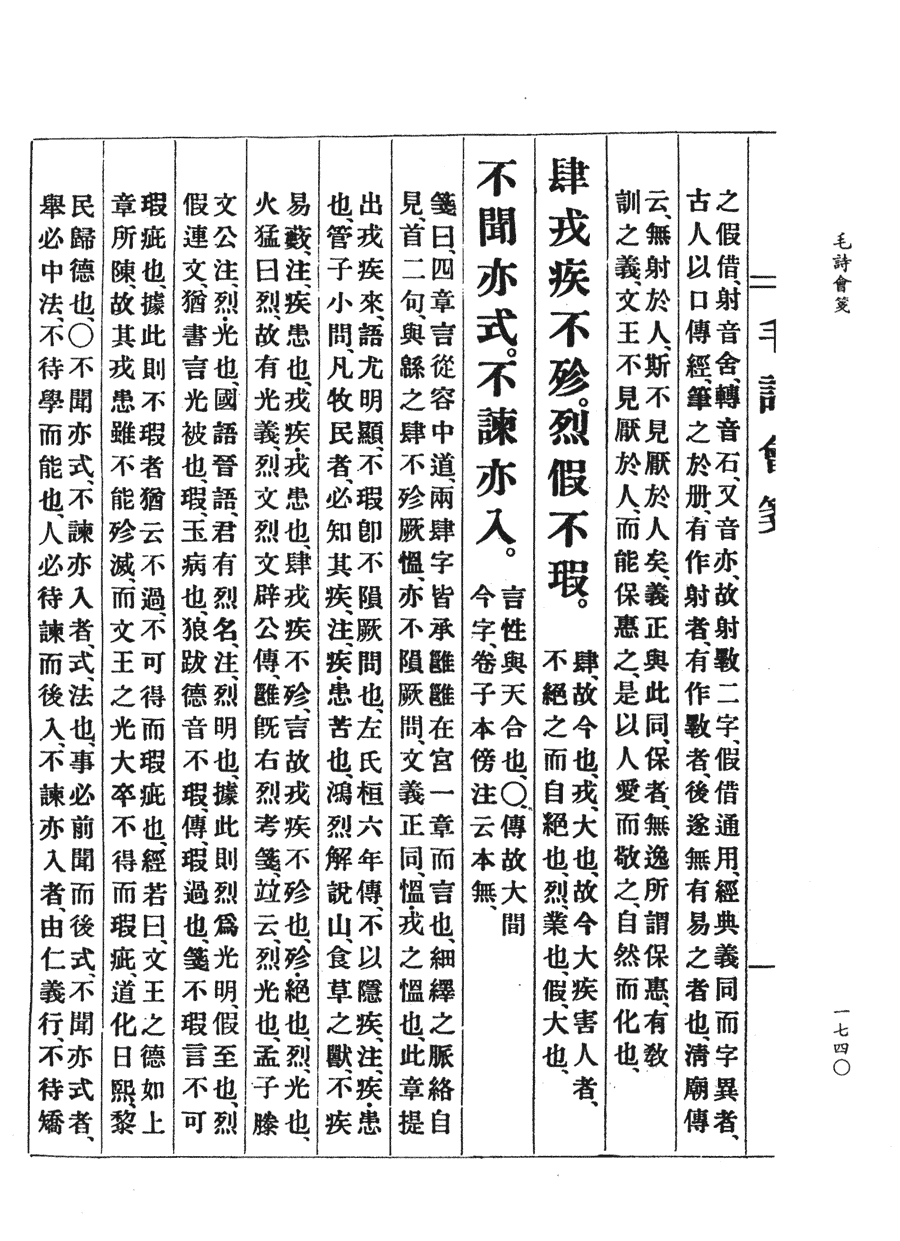 毛詩會箋
一七四〇
毛詩會箋
之假借、射音舍、轉音石、又音亦、故射斁二字、假借通用、經典義同而字異者、
古人以口傳經、筆之於册、有作射者、有作斁者、後遂無有易之者也、淸廟傳
云、無射於人、斯不見厭於人矣、義正與此同、保者、無逸所謂保惠、有敎
訓之義、文王不見厭於人、而能保惠之、是以人愛而敬之、自然而化也、
肆戎疾不殄。烈假不瑕。
肆、故今也、戎、大也、故今大疾害人者、
不絕之而自絕也、烈、業也、假、大也、
不聞亦式。不諫亦入。
言性與天合也、〇、傳故大間
今字、卷子本傍注云本無、
箋曰、四章言從容中道、兩肆字皆承雝雝在宮一章而言也、細繹之脈絡自
見、首二句、與緜之肆不殄厥慍、亦不隕厥問、文義正同、慍・戎之慍也、此章提
出戎疾來、語尤明顯、不瑕卽不隕厥問也、左氏桓六年傳、不以隱疾、注、疾・患
也、管子小問、凡牧民者、必知其疾、注、疾・患苦也、鴻烈解說山、食草之獸、不疾
易藪、注、疾・患也、戎疾・戎患也、肆戎疾不殄、言故戎疾不殄也、殄・絕也、烈、光也、
火猛曰烈、故有光義、烈文烈文辟公傳、雝旣右烈考箋、竝云、烈・光也、孟子滕
文公注、烈・光也、國語晉語、君有烈名、注、烈明也、據此則烈爲光明、假至也、烈
假連文、猶書言光被也、瑕、玉病也、狼跋德音不瑕、傳、瑕過也、箋不瑕言不可
瑕疵也、據此則不瑕者猶云不過、不可得而瑕疵也、經若曰、文王之德如上
章所陳、故其戎患雖不能殄滅、而文王之光大卒不得而瑕疵、道化日熙、黎
民歸德也、〇不聞亦式、不諫亦入者、式、法也、事必前聞而後式、不聞亦式者、
舉必中法、不待學而能也、人必待諫而後入、不諫亦入者、由仁義行、不待矯